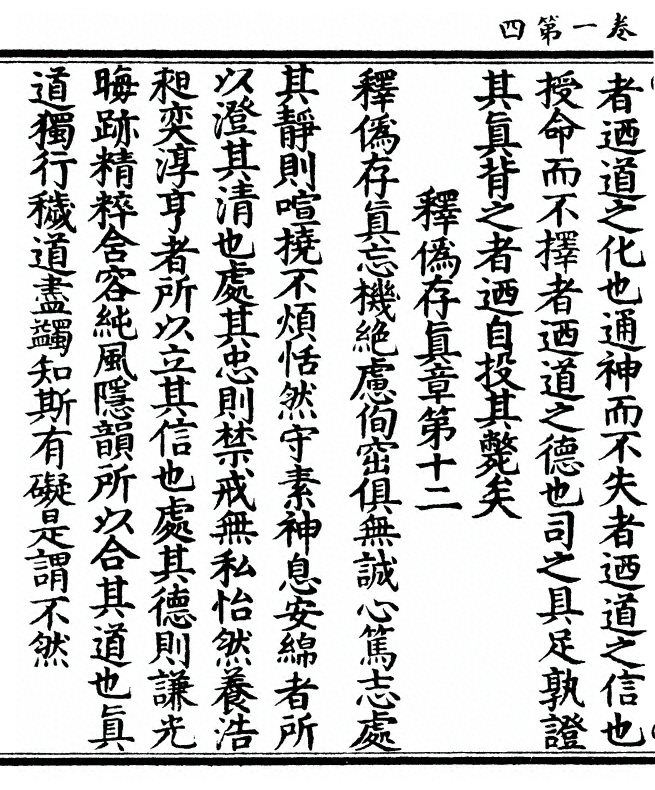 卷一第四
者迺道之化也通神而不失者迺道之信也
授命而不擇者迺道之德也司之具足孰證
其眞背之者迺自投其斃矣
釋僞存眞章第十二
釋僞存眞忘機絶慮徇窋俱無誠心篤志處
其靜則喧撓不煩恬然守素神息安綿者所
以澄其清也處其忠則禁戒無私怡然養浩
和奕淳亨者所以立其信也處其德則謙光
晦跡精粹含容純風隱韻所以合其道也眞
道獨行穢道盡蠲知斯有礙是謂不然